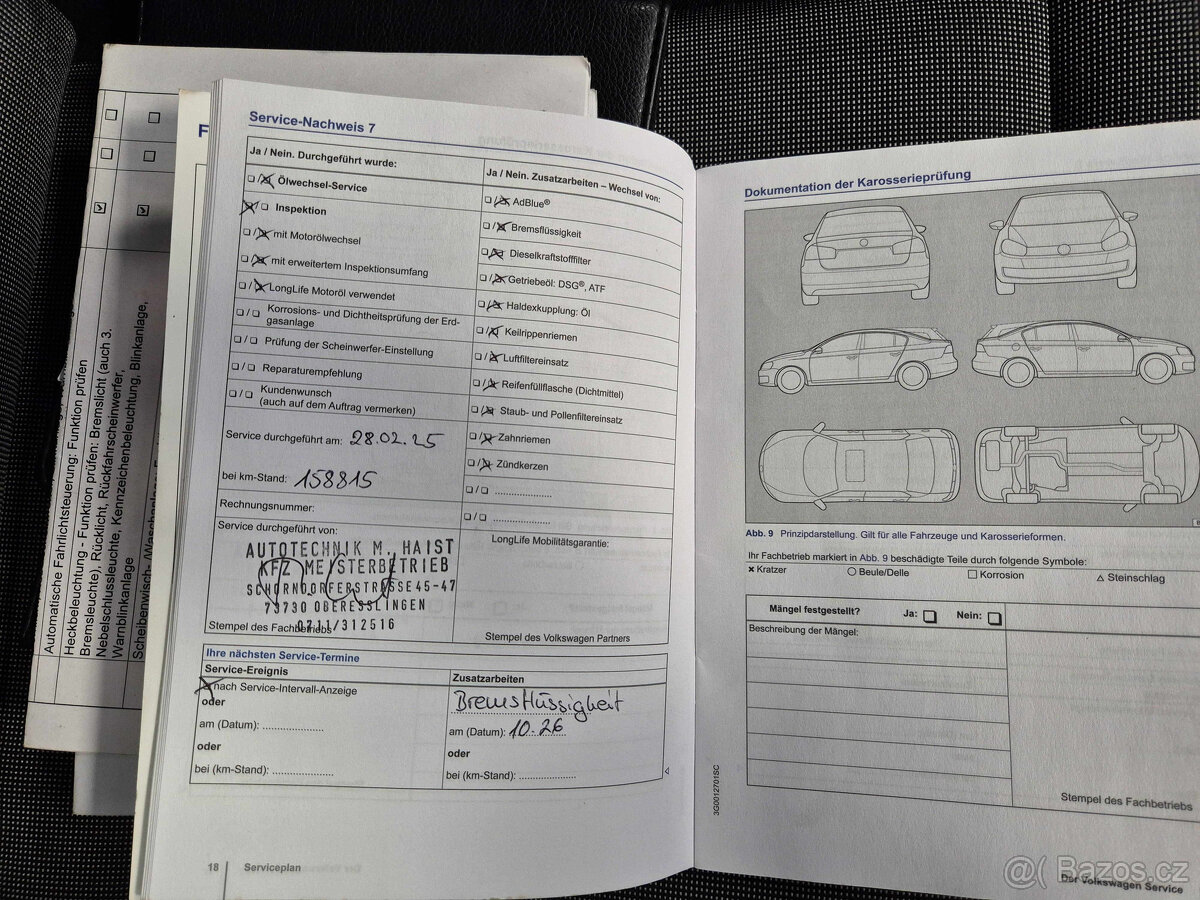 Service-Nachweis 7
Ja / Nein. Durchgeführt wurde:
Ölwechsel-Service
Inspektion
mit Motorölwechsel
mit erweitertem Inspektionsumfang
LongLife Motoröl verwendet
Korrosions- und Dichtheitsprüfung der Erd-
gasanlage
Prüfung der Scheinwerfer-Einstellung
Reparaturempfehlung
Kundenwunsch
(auch auf dem Auftrag vermerken)
Service durchgeführt am: 28.02.25
bei km-Stand: 158815
Rechnungsnummer:
Service durchgeführt von:
AUTOTECHNIK M. HAIST
KFZ MEISTERBETRIEB
SCHORNDORFERSTRASSE 45-47
73730 OBERESSLINGEN
0711/312516
Stempel des Fachbetriebs
Ja / Nein. Zusatzarbeiten – Wechsel von:
AdBlue®
Bremsflüssigkeit
Dieselkraftstofffilter
Getriebeöl: DSG®, ATF
Haldexkupplung: Öl
Keilrippenriemen
Luftfiltereinsatz
Reifenfüllflasche (Dichtmittel)
Staub- und Pollenfiltereinsatz
Zahnriemen
Zündkerzen
LongLife Mobilitätsgarantie:
Stempel des Volkswagen Partners
Ihre nächsten Service-Termine
Service-Ereignis
nach Service-Intervall-Anzeige
oder
am (Datum): ....................
oder
bei (km-Stand): ....................
Zusatzarbeiten
Bremsflüssigkeit
am (Datum): 10.26
oder
bei (km-Stand): ....................
18 Serviceplan
Dokumentation der Karosserieprüfung
Abb. 9 Prinzipdarstellung. Gilt für alle Fahrzeuge und Karosserieformen.
Ihr Fachbetrieb markiert in Abb. 9 beschädigte Teile durch folgende Symbole:
× Kratzer ○ Beule/Delle □ Korrosion △ Steinschlag
Mängel festgestellt? Ja: Nein:
Beschreibung der Mängel:
Stempel des Fachbetriebs
3G0012701SC
Der Volkswagen Service
F
Automatische Fahrlichtsteuerung: Funktion prüfen
Heckbeleuchtung - Funktion prüfen: Bremslicht (auch 3.
Bremsleuchte), Rücklicht, Rückfahrscheinwerfer,
Nebelschlussleuchte, Kennzeichenbeleuchtung, Blinkanlage,
Warnblinkanlage
Bazos.cz